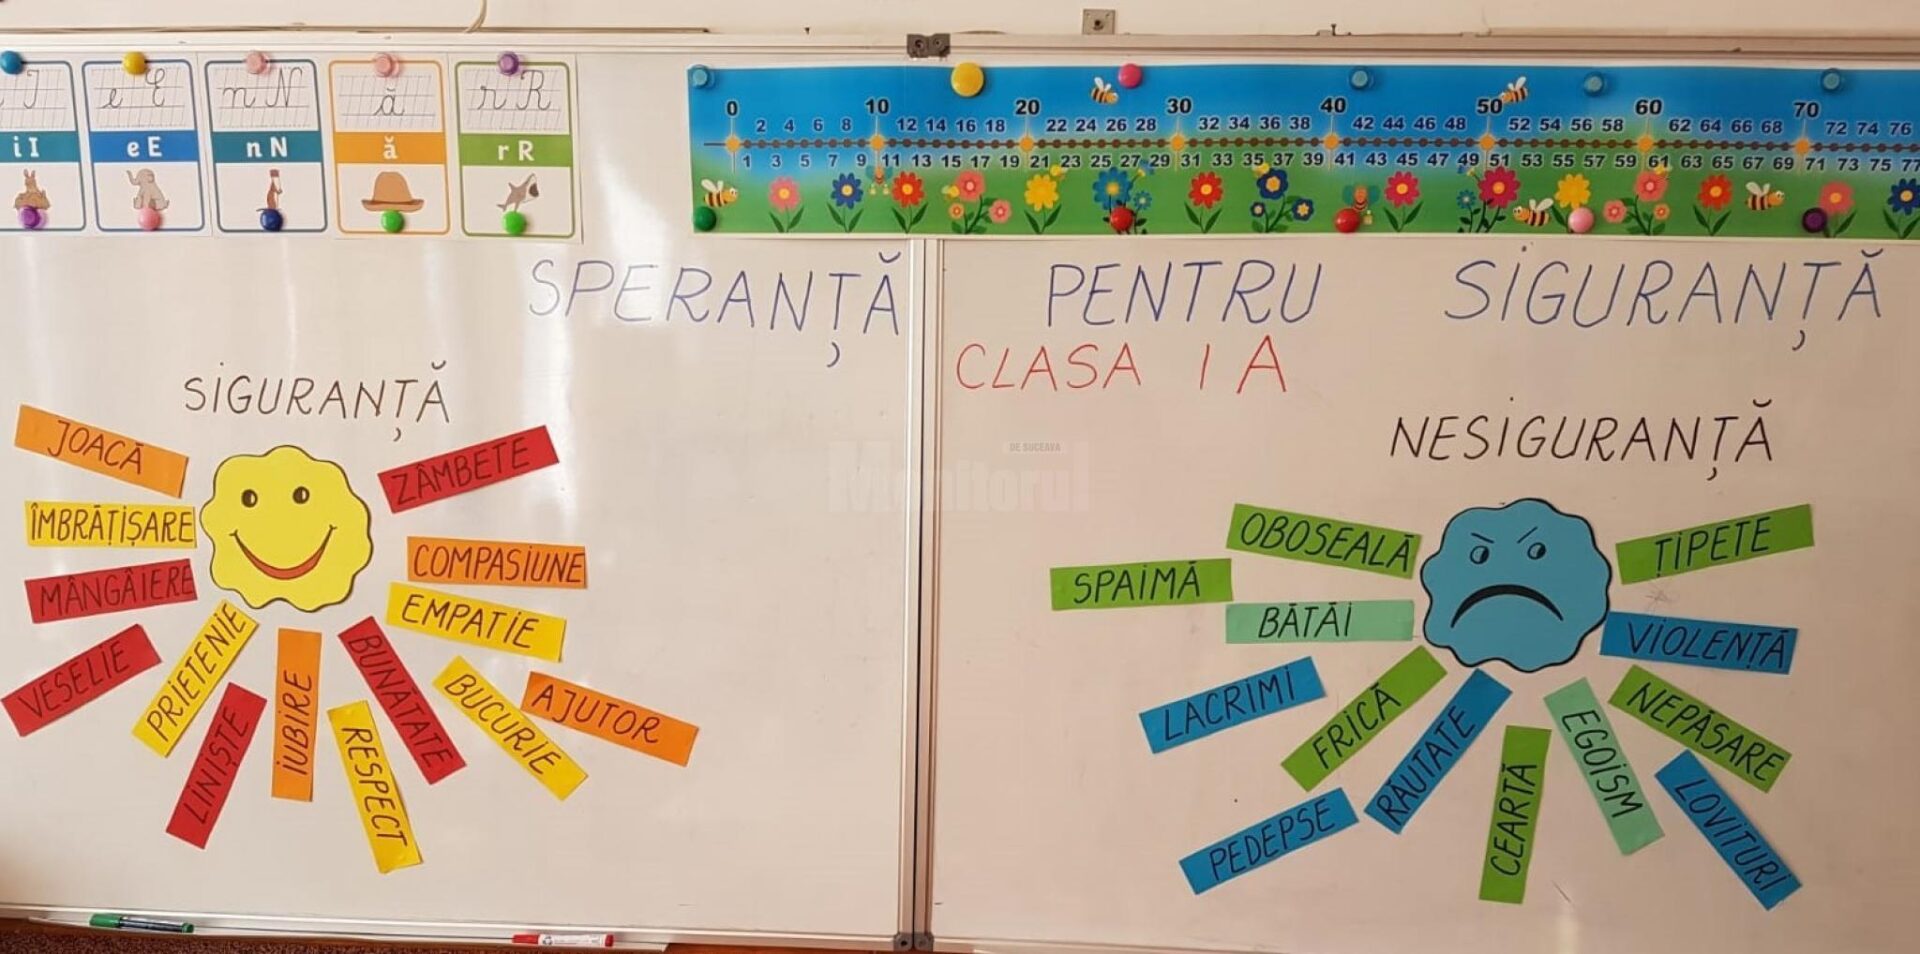 I
e E
n N
ă
r R
i I
e E
n N
ă
r R
0 10 20 30 40 50 60 70
2 4 6 8 12 14 16 18 22 24 26 28 32 34 36 38 42 44 46 48 52 54 56 58 62 64 66 68 72 74 76
1 3 5 7 9 11 13 15 17 19 21 23 25 27 29 31 33 35 37 39 41 43 45 47 49 51 53 55 57 59 61 63 65 67 69 71 73 75 77
SPERANȚĂ PENTRU SIGURANȚĂ
CLASA I A
SIGURANȚĂ
JOACĂ
ZÂMBETE
ÎMBRĂȚIȘARE
COMPASIUNE
MÂNGÂIERE
EMPATIE
VESELIE
PRIETENIE
LINIȘTE
IUBIRE
RESPECT
BUNĂTATE
BUCURIE
AJUTOR
DE SUCEAVA
Monitorul
NESIGURANȚĂ
OBOSEALĂ
ȚIPETE
SPAIMĂ
BĂTĂI
VIOLENȚĂ
LACRIMI
FRICĂ
NEPĂSARE
PEDEPSE
RĂUTATE
CEARTĂ
EGOISM
LOVITURI